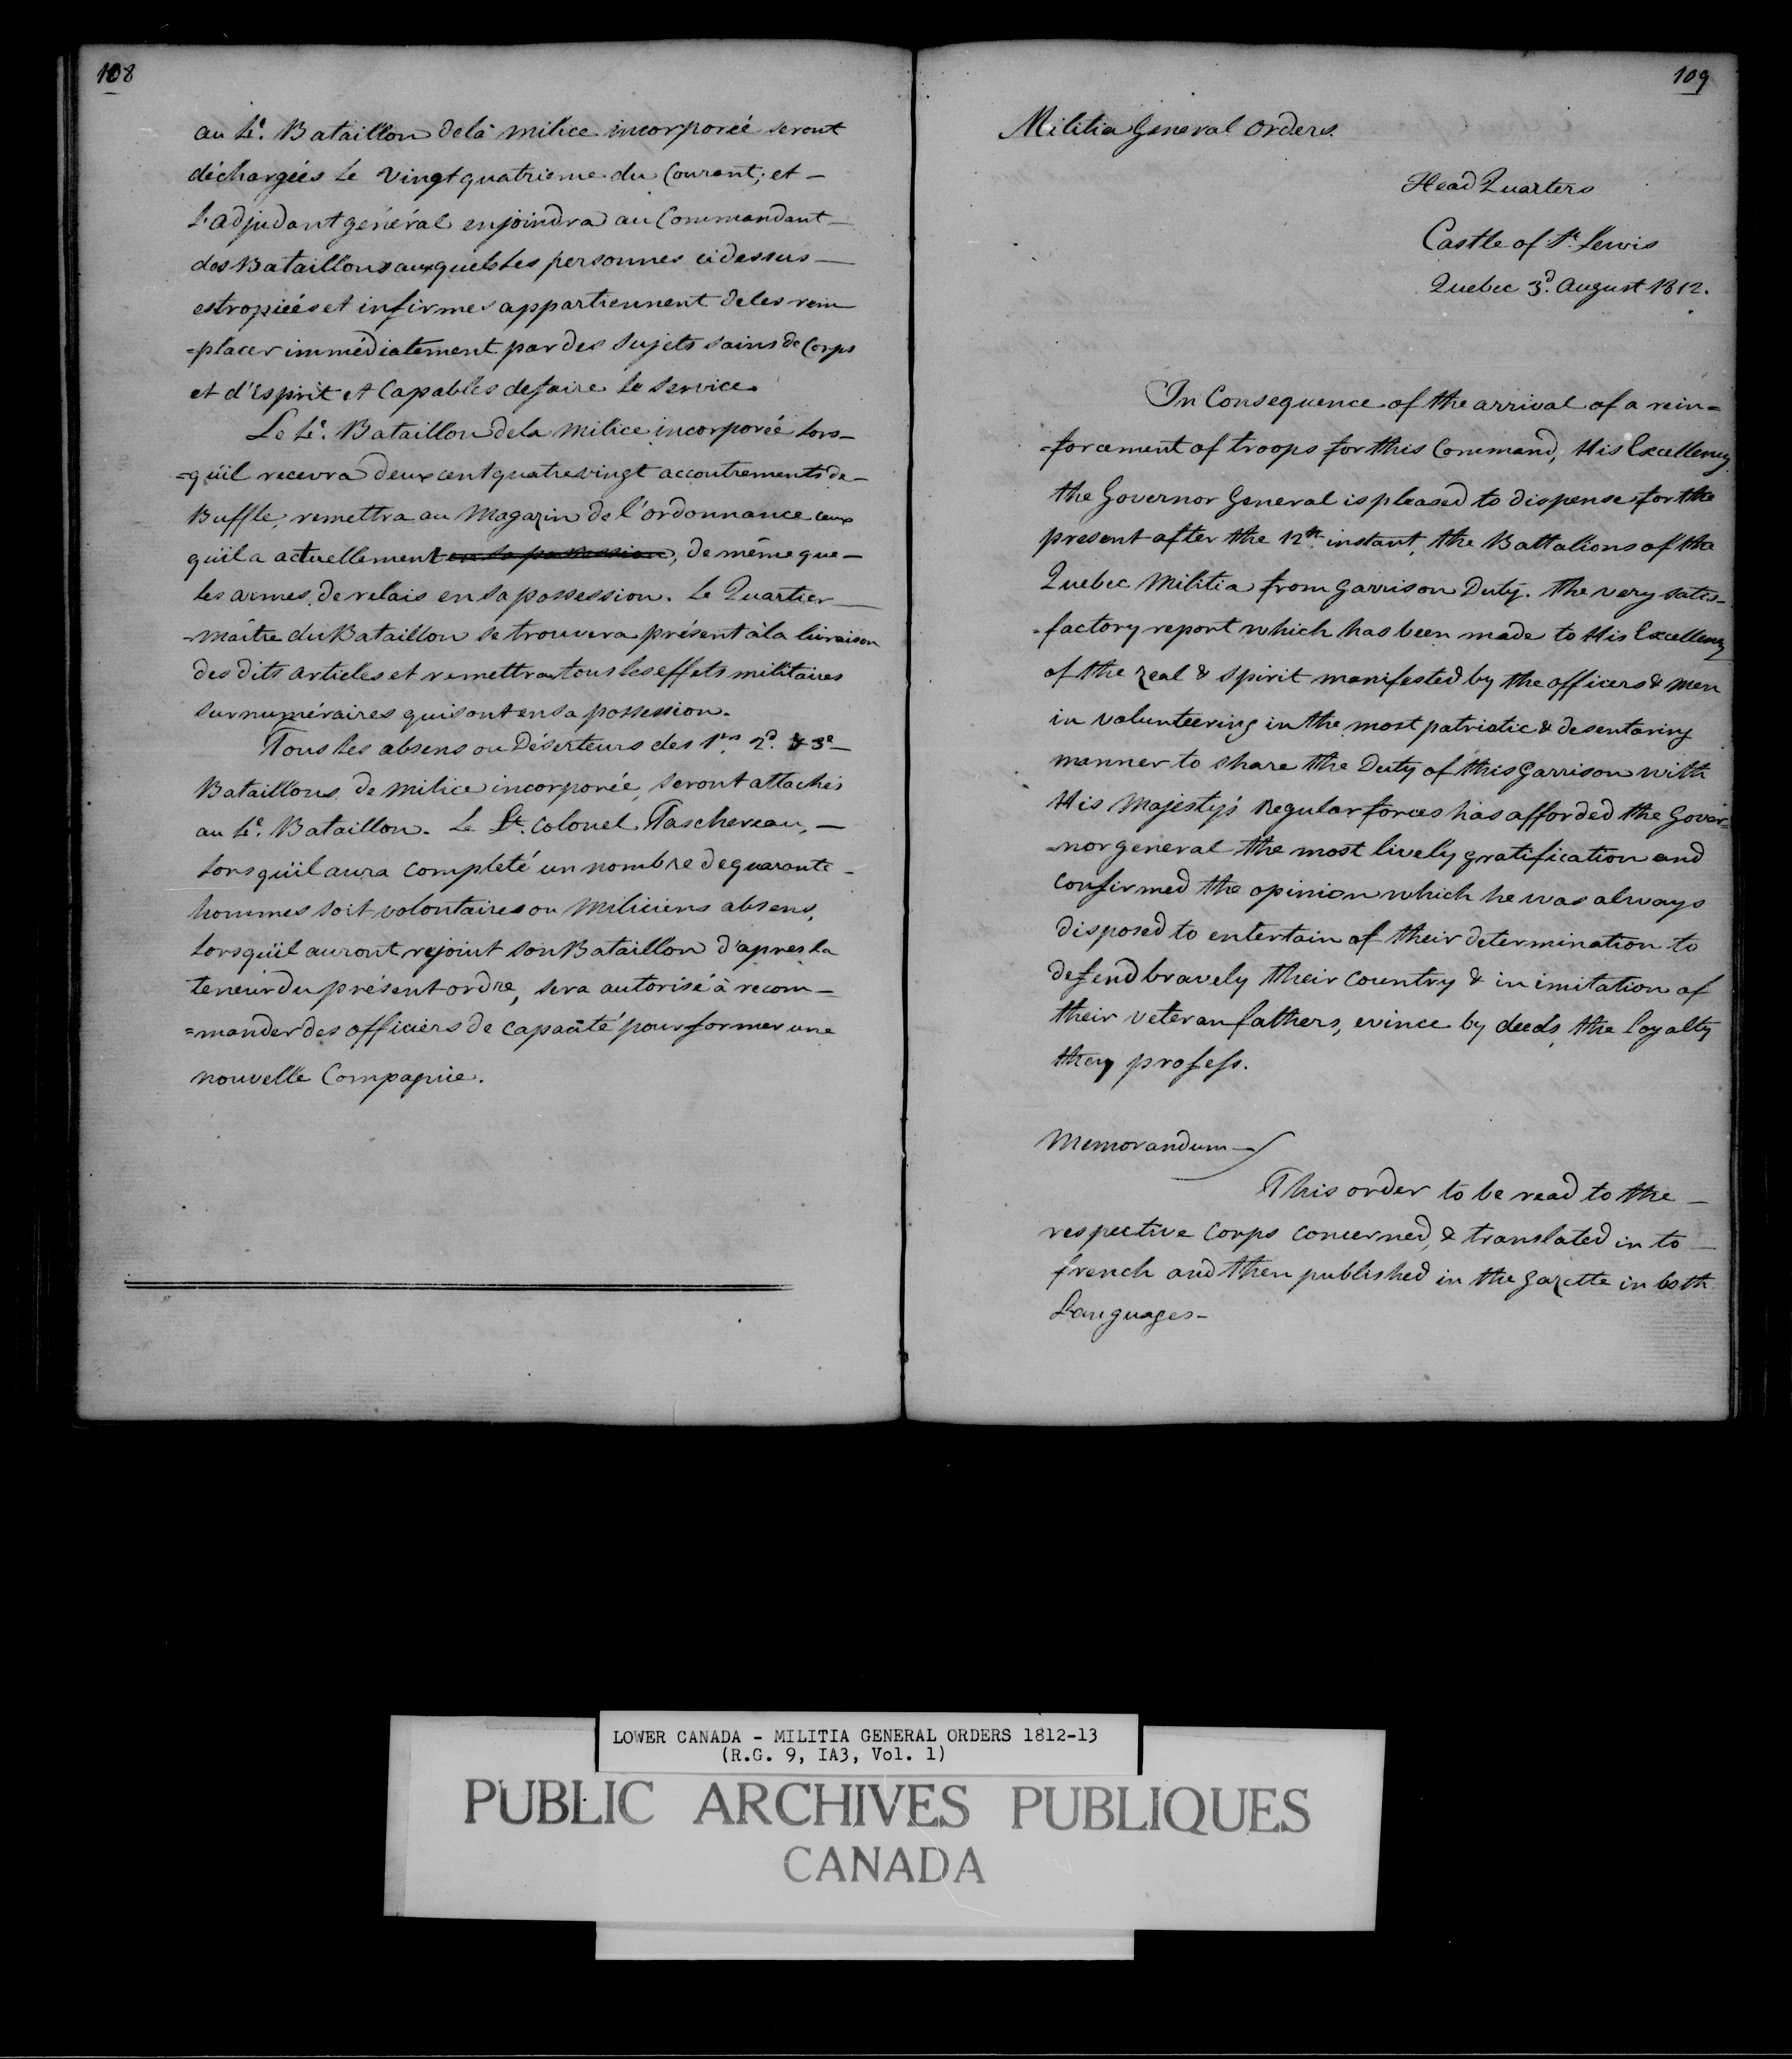 108
au 4e. Bataillon de la milice incorporée seront
déchargées le vingt quatrieme du Courant; et —
l'adjudant général enjoindra au Commandant —
des Bataillons auxquels les personnes ci dessus —
estropiées et infirmes appartiennent de les rem
=placer immédiatement par des Sujets sains de Corps
et d'Esprit et Capables de faire le service.
Le 4e. Bataillon de la Milice incorporée lors—
=qu'il recevra deux cent quatre vingt accoutrements de—
Buffle, remettra au Magazin de l'ordonnance ceux
qu'il a actuellement en sa possession, de même que —
les armes de relais en sa possession. Le Quartier —
-maître du Bataillon se trouvera présent à la livraison
des dits articles et remettra tous les effets militaires
surnuméraires qui sont en sa possession.
Tous les absens ou Déserteurs des 1ers 2d. & 3e —
Bataillons de Milice incorporée, seront attachés
au 4e. Bataillon. Le Lt. Colonel Taschereau, —
lorsqu'il aura completé un nombre de quarante -
hommes soit volontaires ou Miliciens absens,
lorsqu'il auront rejoint son Bataillon d'apres la
teneur du présent ordre, sera autorisé à recom—
=mander des officiers de capacité pour former une
nouvelle Compagnie.
109
Militia General Orders.
Head Quarters
Castle of St. Lewis
Quebec 3d. August 1812.
In Consequence of the arrival of a rein=
=forcement of troops for this Command, His Excellency
the Governor General is pleased to dispense for the
present after the 12th. instant, the Battalions of the
Quebec Militia from Garrison Duty. The very satis-
=factory report which has been made to His Excellency
of the zeal & spirit manifested by the officers & men
in volunteering in the most patriotic & desentaring
manner to share the Duty of this Garrison with
His Majesty's Regular forces has afforded the Gover=
=nor general the most lively gratification and
confirmed the opinion which he was always
disposed to entertain of their determination to
defend bravely their Country & in imitation of
their veteran fathers, evince by deeds, the Loyalty
they profess.
Memorandum
This order to be read to the —
respective Corps concerned, & translated in to —
french and then published in the Gazette in both
Languages -
LOWER CANADA - MILITIA GENERAL ORDERS 1812-13
(R.G. 9, IA3, Vol. 1)
PUBLIC ARCHIVES PUBLIQUES
CANADA